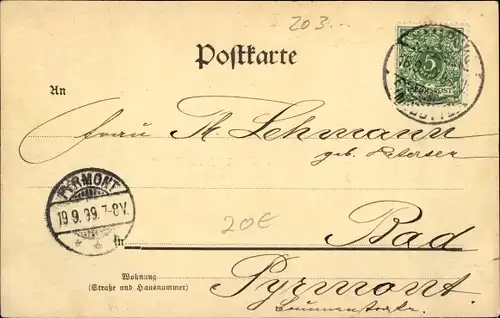 203...
Postkarte
5
An
Frau Th. Lehmann
geb. Petersen
PYRMONT
19.9.99.7-8V.
20€
In Bad
Wohnung
(Straße und Hausnummer)
Pyrmont.
Brunnenstraße.